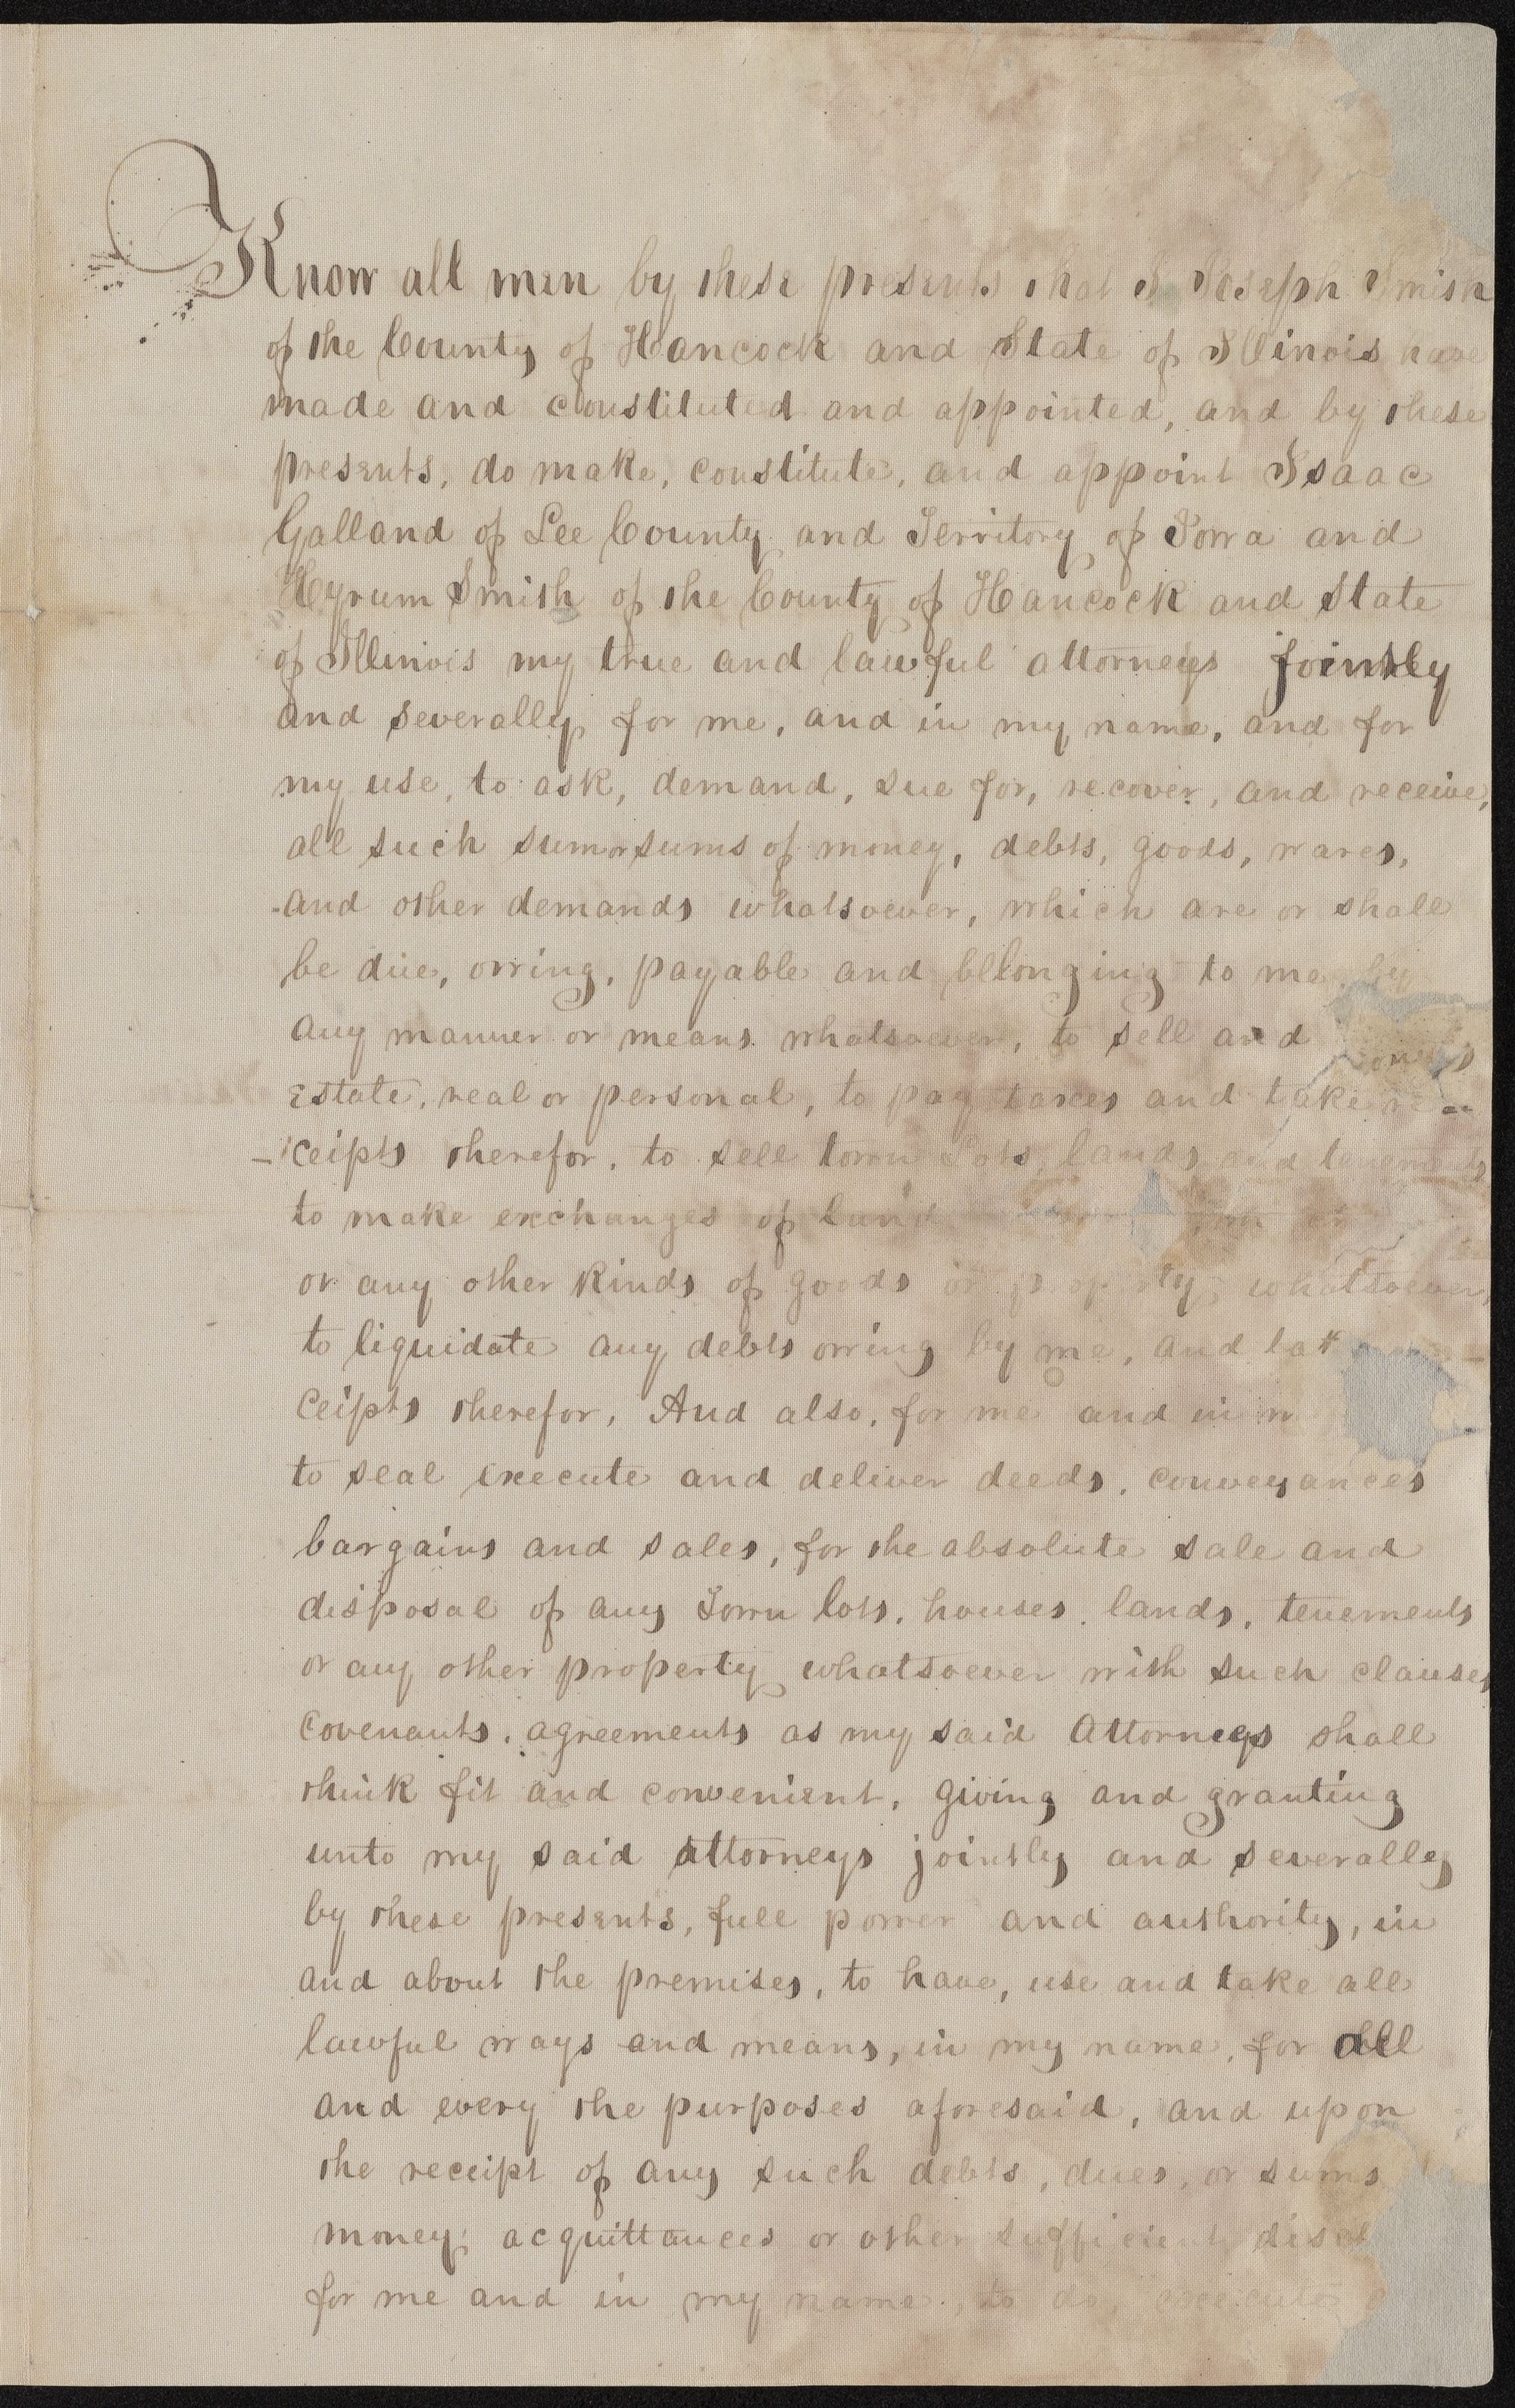 Know all men by these presents that I Joseph Smith
of the County of Hancock and State of Illinois have
made and constituted and appointed, and by these
presents, do make, constitute, and appoint Isaac
Galland of Lee County and Territory of Iowa and
Hyrum Smith of the County of Hancock and State
of Illinois my true and lawful attorneys jointly
and severally for me, and in my name, and for
my use, to ask, demand, sue for, recover, and receive,
all such sum or sums of money, debts, goods, wares,
and other demands whatsoever, which are or shall
be due, owing, payable and bellonging to me by
any manner or means whatsoever, to sell and
Estate, real or personal, to pay taxes and take re-
-ceipts therefor, to sell town Lots, lands and tenements
to make exchanges of land
or any other kinds of goods or property whatsoever,
to liquidate any debts owing by me, and
ceipts therefor, And also, for me and in
to seal execute and deliver deeds, conveyances
bargains and sales, for the absolute sale and
disposal of any Town lots, houses, lands, tenements
or any other property whatsoever with such clauses
covenants, agreements as my said Attorneys shall
think fit and convenient, giving and granting
unto my said attorneys jointly and severally
by these presents, full power and authority, in
and about the premises, to have, use and take all
lawful ways and means, in my name, for all
and every the purposes aforesaid, and upon
the receipt of any such debts, dues, or sums
money, acquittances or other sufficient
for me and in my name, to do, execute